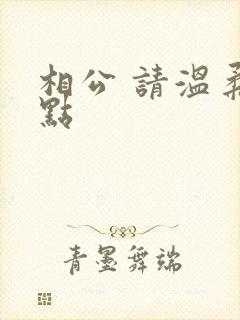 相公 請溫柔
點
青墨舞端